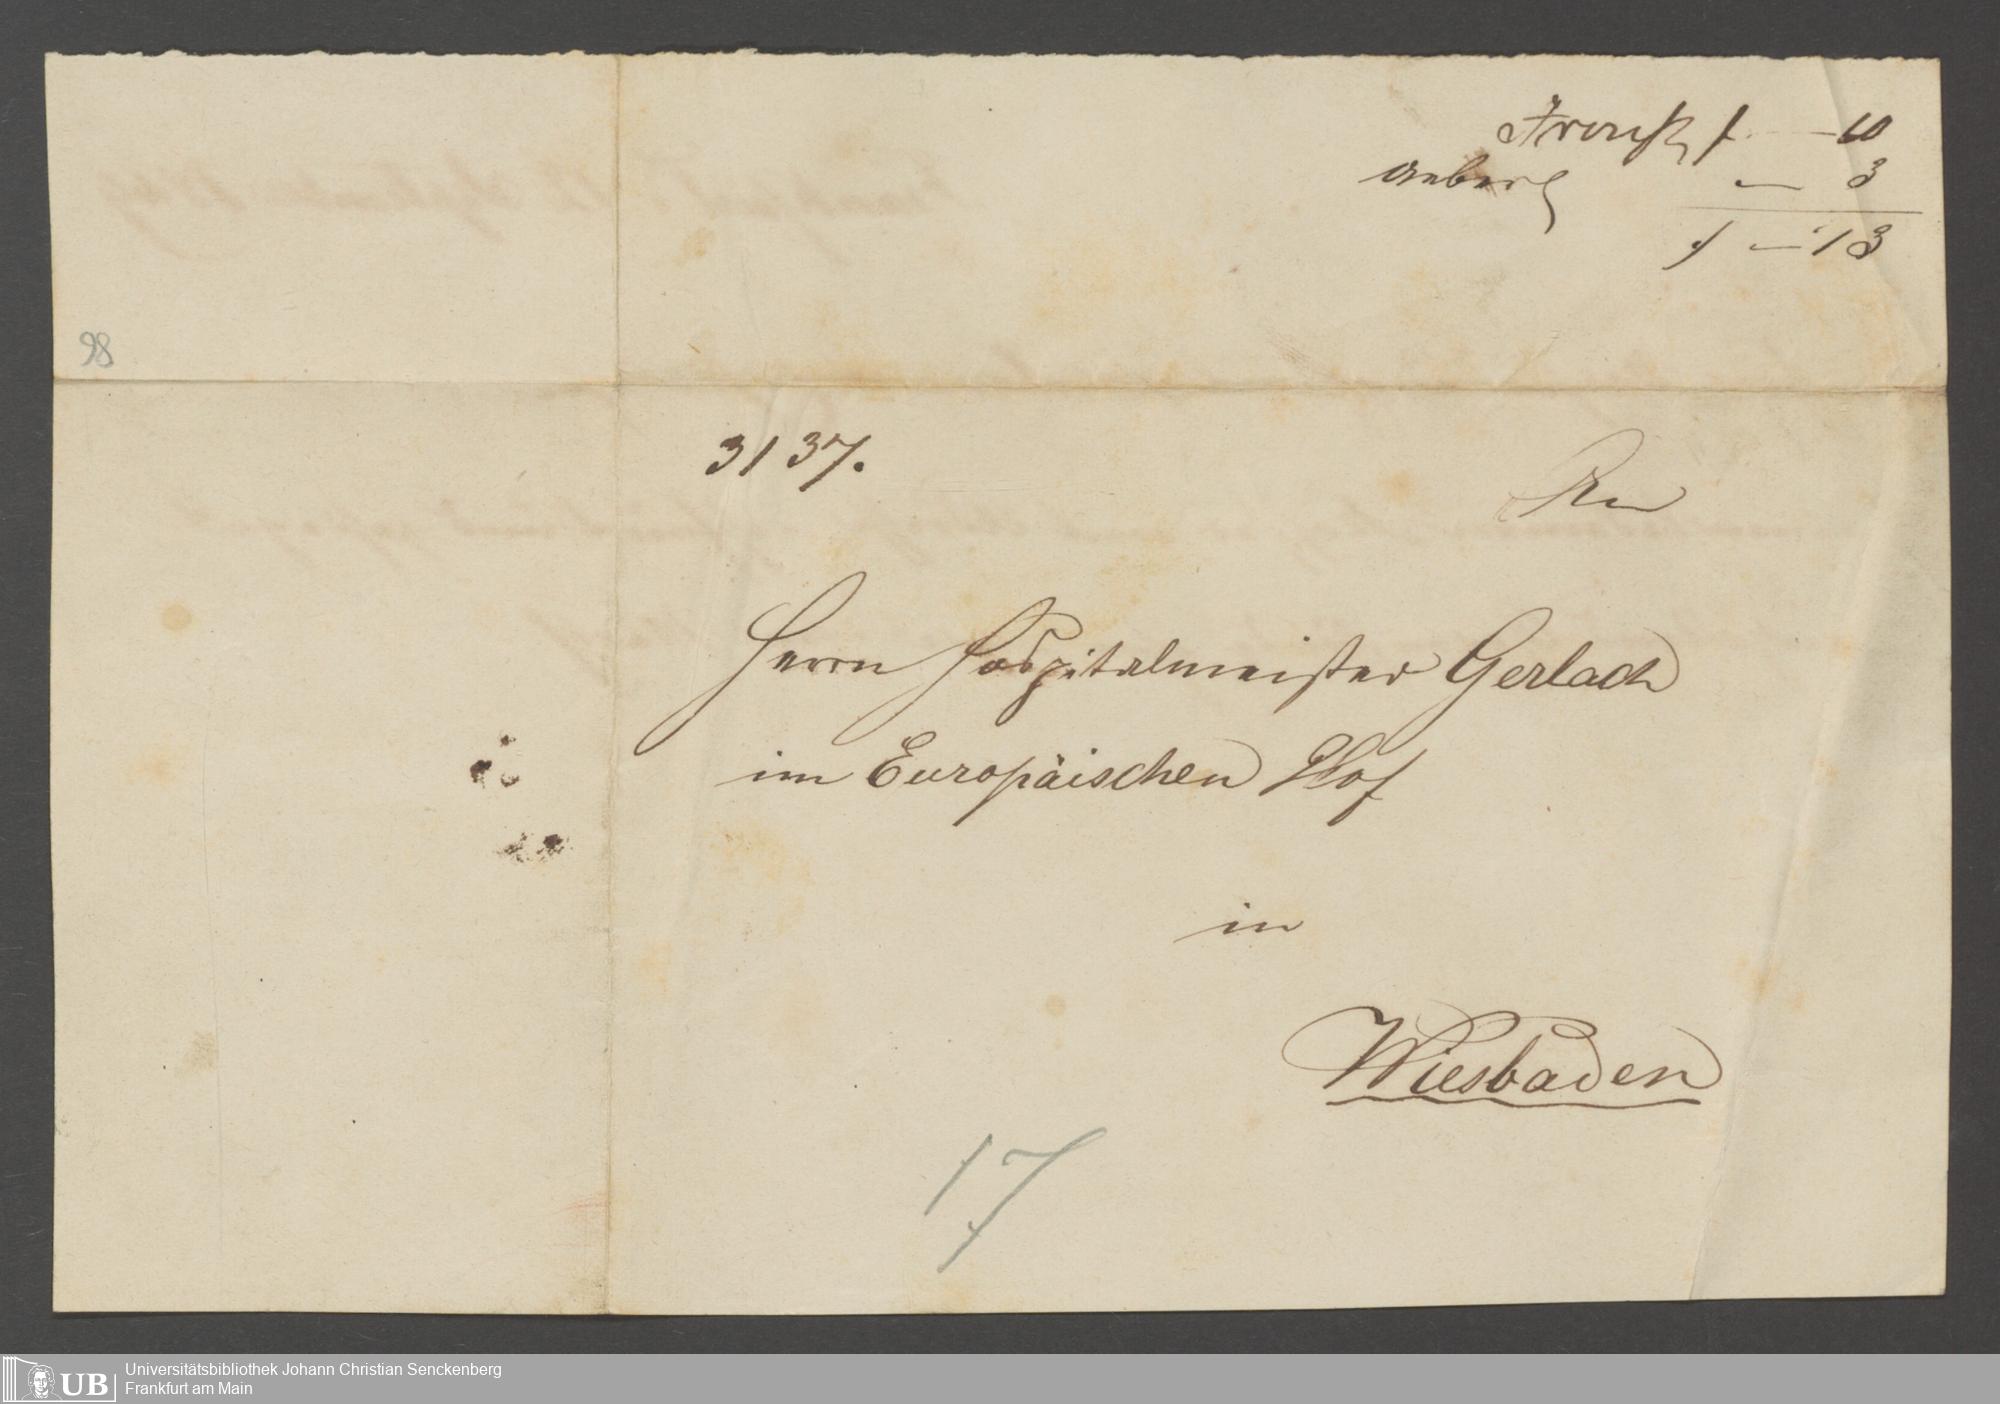 – 10
– 3
1 – 13
98
3137.
An
Herrn Hospitalmeister Gerlach
im Europäischen Hof
in
Wiesbaden
17
UB
Universitätsbibliothek Johann Christian Senckenberg
Frankfurt am Main